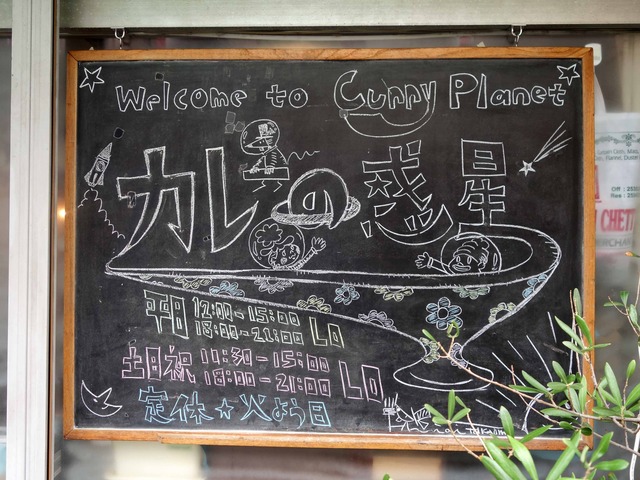 Welcome to Curry Planet
カレの惑星
平日 12:00-15:00
18:00-21:00 LO
土日祝 11:30-15:00
18:00-21:00 LO
定休★火よう日